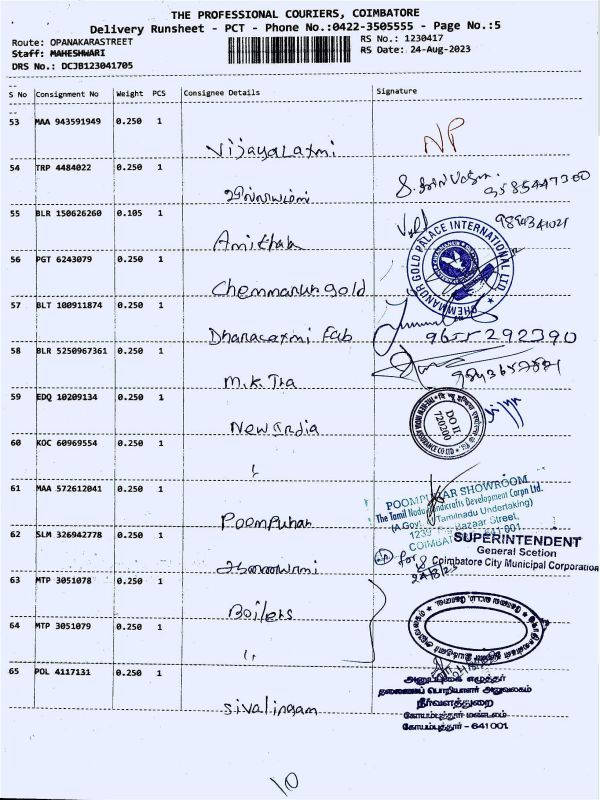 THE PROFESSIONAL COURIERS, COIMBATORE
Delivery Runsheet - PCT - Phone No.:0422-3505555 - Page No.:5
Route: OPANAKARASTREET
RS No.: 1230417
Staff: MAHESHWARI
RS Date: 24-Aug-2023
DRS No.: DCJB123041705
S No Consignment No Weight PCS Consignee Details Signature
53 MAA 943591949 0.250 1
Vijayalaxmi NP
54 TRP 4484022 0.250 1
9585447360
55 BLR 150626260 0.105 1
Amithab
56 PGT 6243079 0.250 1
CHEMMANUR GOLD PALACE INTERNATIONAL LTD.
Chemmanur gold
57 BLT 100911874 0.250 1
Dhanalaxmi Fab 9655292390
58 BLR 5250967361 0.250 1
M.K Tra
59 EDQ 10209134 0.250 1
New India
DO II
720200
60 KOC 60969554 0.250 1
"
61 MAA 572612041 0.250 1
POOMPUHAR SHOWROOM
The Tamil Nadu Handicrafts Development Corpn Ltd.
(A Govt. of Tamilnadu Undertaking)
Poompuhar
Bazaar Street,
COIMBATORE-641 001
62 SLM 326942778 0.250 1
SUPERINTENDENT
General Scetion
for Coimbatore City Municipal Corporation
24/8/23
63 MTP 3051078 0.250 1
Boilers
64 MTP 3051079 0.250 1
"
65 POL 4117131 0.250 1
அனுப்புகை எழுத்தர்
தலைமைப் பொறியாளர் அலுவலகம்
நீர்வளத்துறை
Sivalingam
கோயம்புத்தூர் மண்டலம்
கோயம்புத்தூர் - 641 001
10